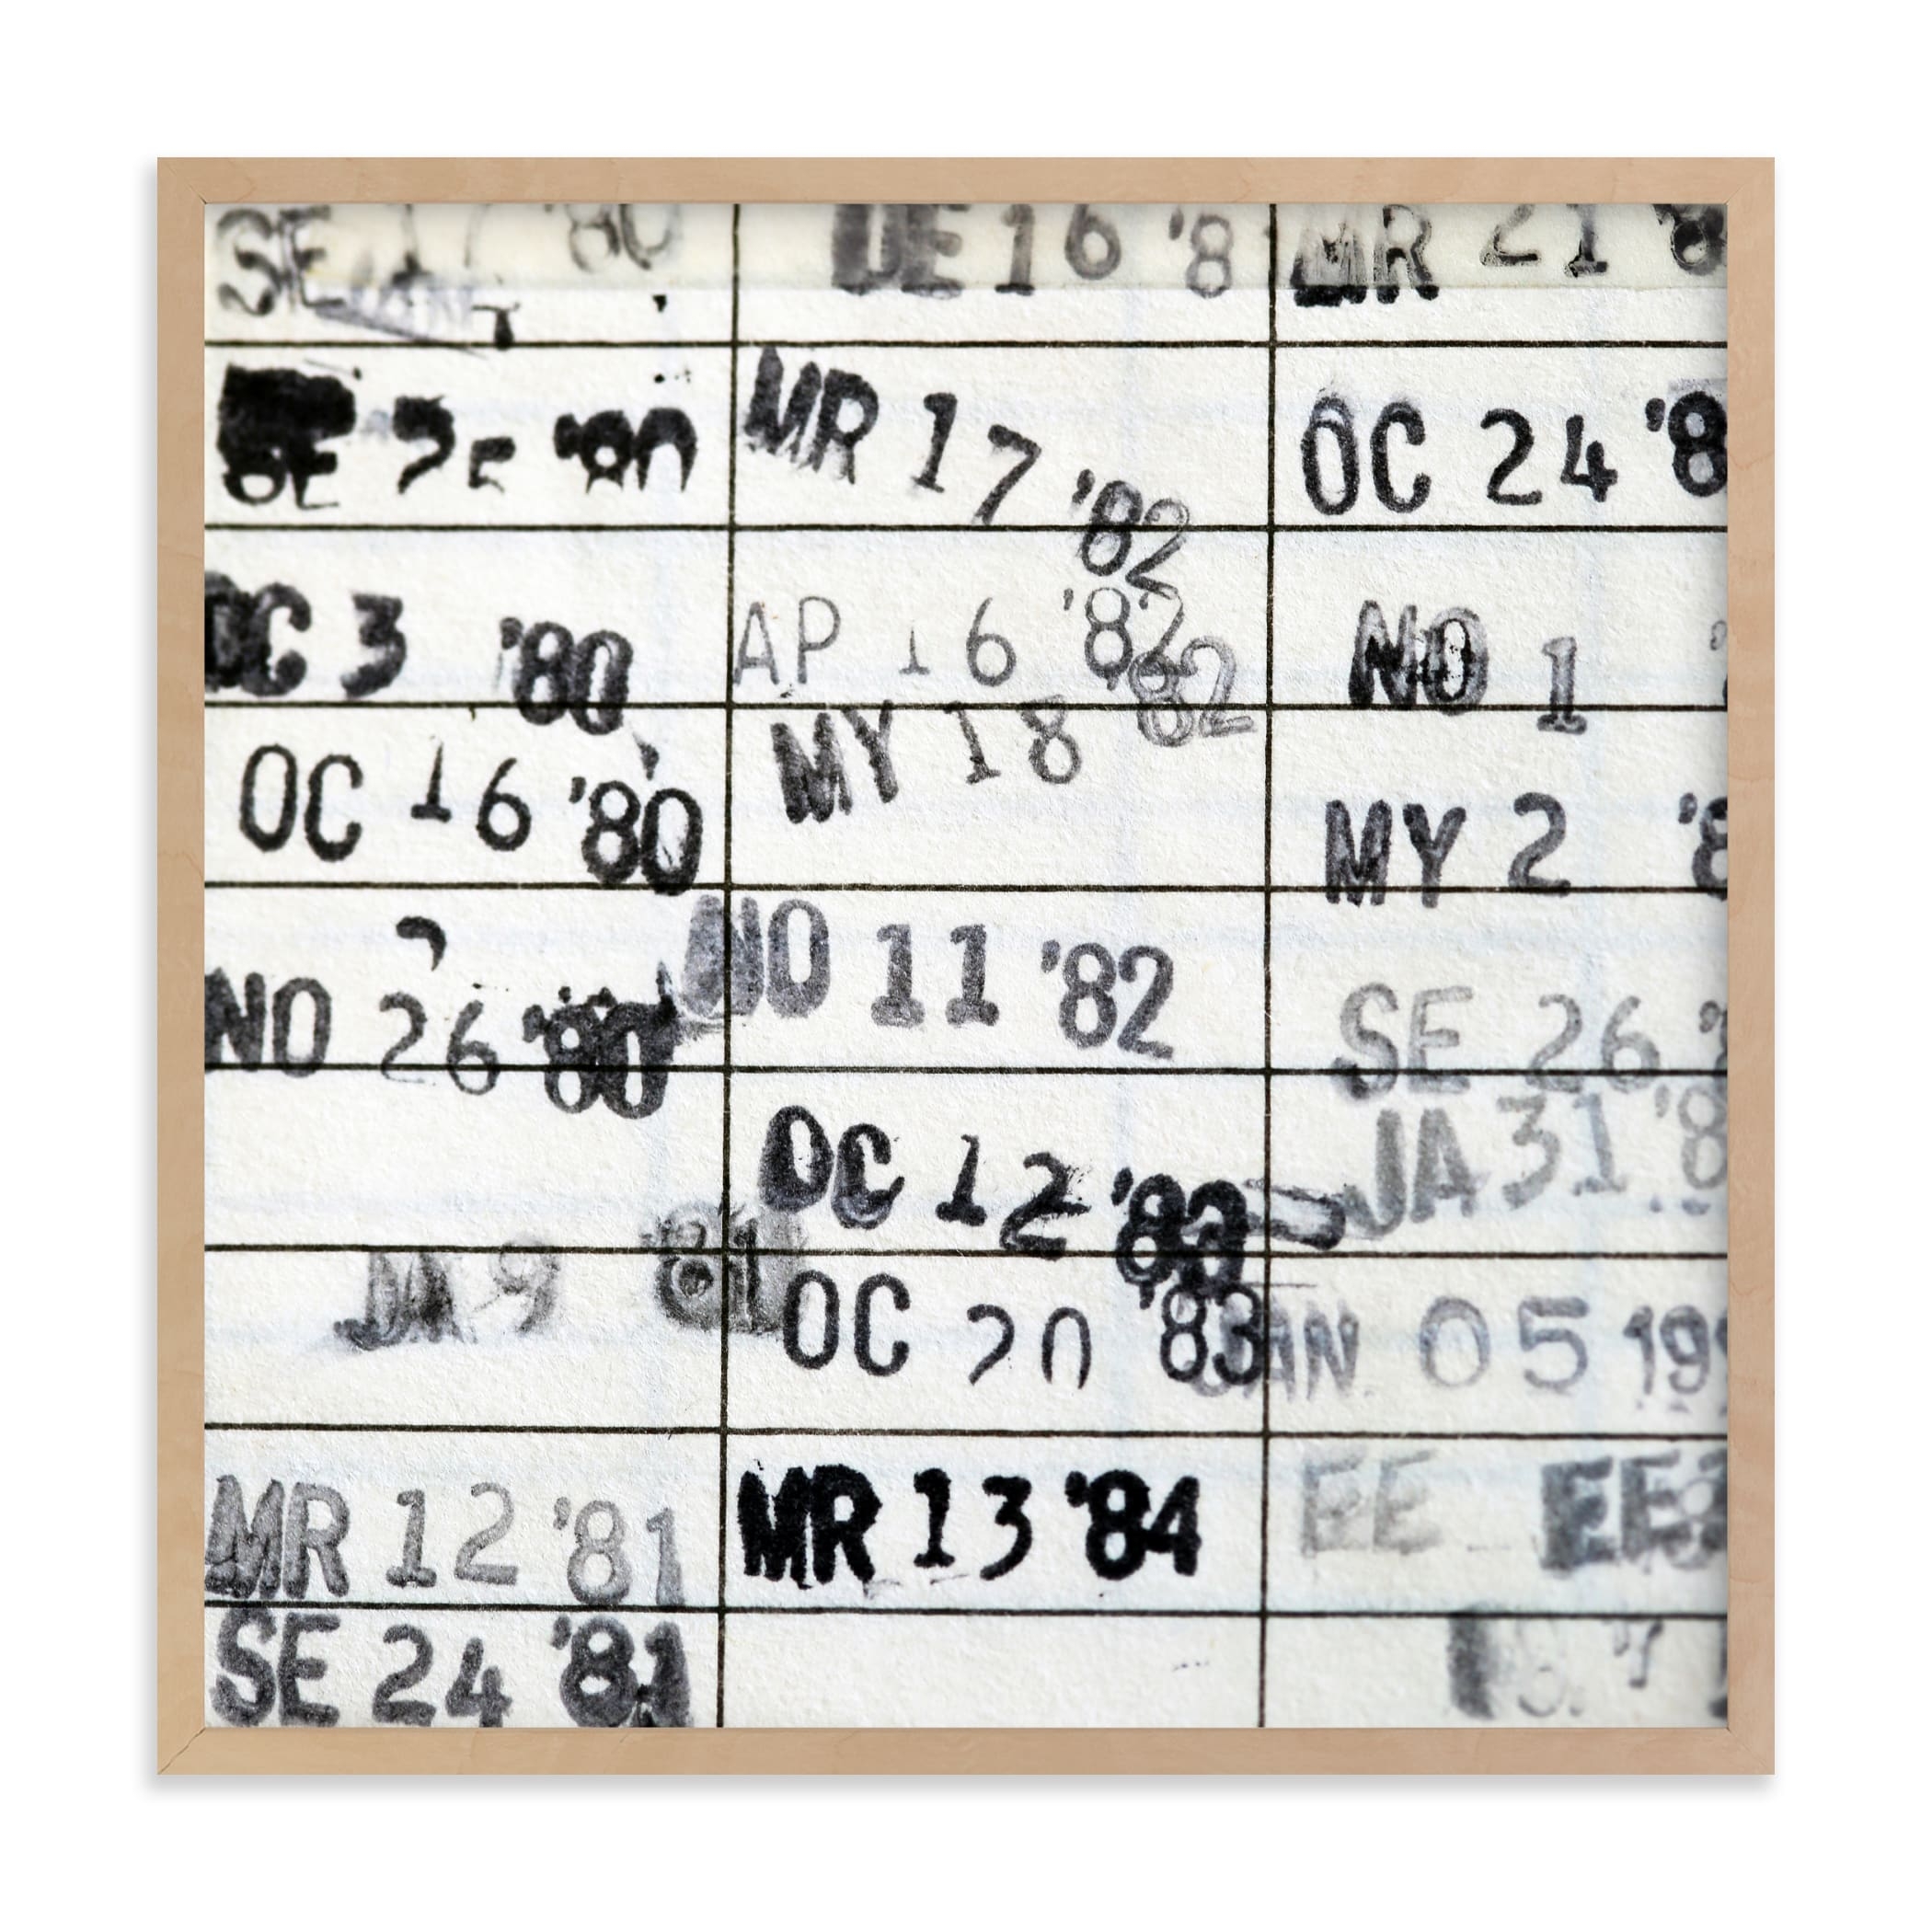 SE 17 '80
DE 16 '8
MR 21 '8
SE 25 '80
MR 17 '82
OC 24 '8
OC 3 '80
AP 16 '82
NO 1
82
OC 16 '80
MY 18
MY 2 '8
NO 26 '80
NO 11 '82
SE 26 '8
OC 12 '83
JA 31 '8
JA 9 81
OC 20 '83
JAN 05 199
MR 12 '81
MR 13 '84
EE EE
SE 24 '81